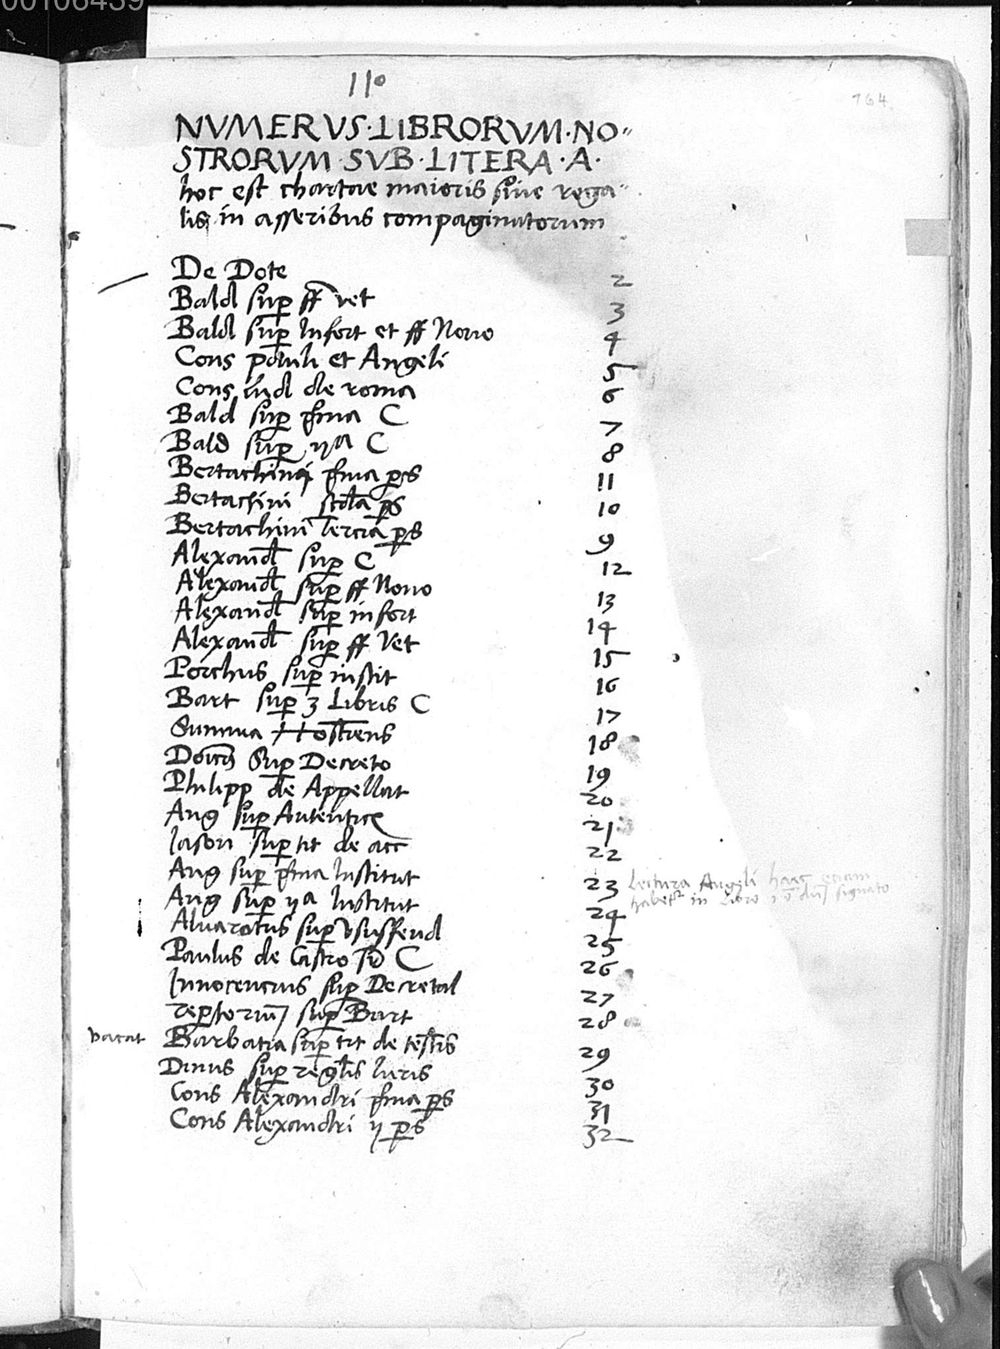 00106439
110
164
NVMERVS·LIBRORVM·NO-
STRORVM·SVB·LITERA·A·
hoc est chartae maioris siue rega-
lis, in asseribus compaginatorum
De Dote 2
Bald sup ff vet 3
Bald sup Infort et ff Nouo 4
Cons pauli et Angeli 5
Cons lud de roma 6
Bald sup prima C 7
Bald sup ij a C 8
Bertachini prima ps 11
Bertachini scda ps 10
Bertachini Tercia ps 9
Alexand sup C 12
Alexand sup ff Nouo 13
Alexand sup infort 14
Alexand sup ff Vet 15
Porchus sup instit 16
Bart sup 3 Libris C 17
Summa Hostiens 18
Domcs Sup Decreto 19
Philipp de Appellat 20
Ang sup Autentice 21
Iason sup tit de acc 22
Ang sup prima Institut 23
Lectura Angeli haec etiam
habetr in Libro signato
Ang sup ij a Institut 24
Aluarotus sup vsuffeud 25
Paulus de Castro C 26
Innocencius sup Decretal 27
repertorium sup Bart 28
vacat Barbatia sup tit de testis 29
Dinus sup reglis Iuris 30
Cons Alexandri prima ps 31
Cons Alexandri ij ps 32